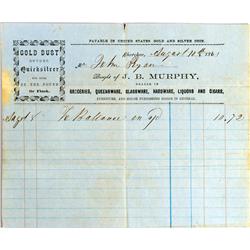 PAYABLE IN UNITED STATES GOLD AND SILVER COIN.
GOLD DUST
BOUGHT
Quicksilver
FOR SALE
BY THE POUND
for Flask.
August 10th 1861
Mr John Ryan
Bought of S. B. MURPHY,
DEALER IN
GROCERIES, QUEENSWARE, GLASSWARE, HARDWARE, LIQUORS AND CIGARS,
FURNITURE, AND HOUSE FURNISHING GOODS IN GENERAL.
To Balance on 10.72